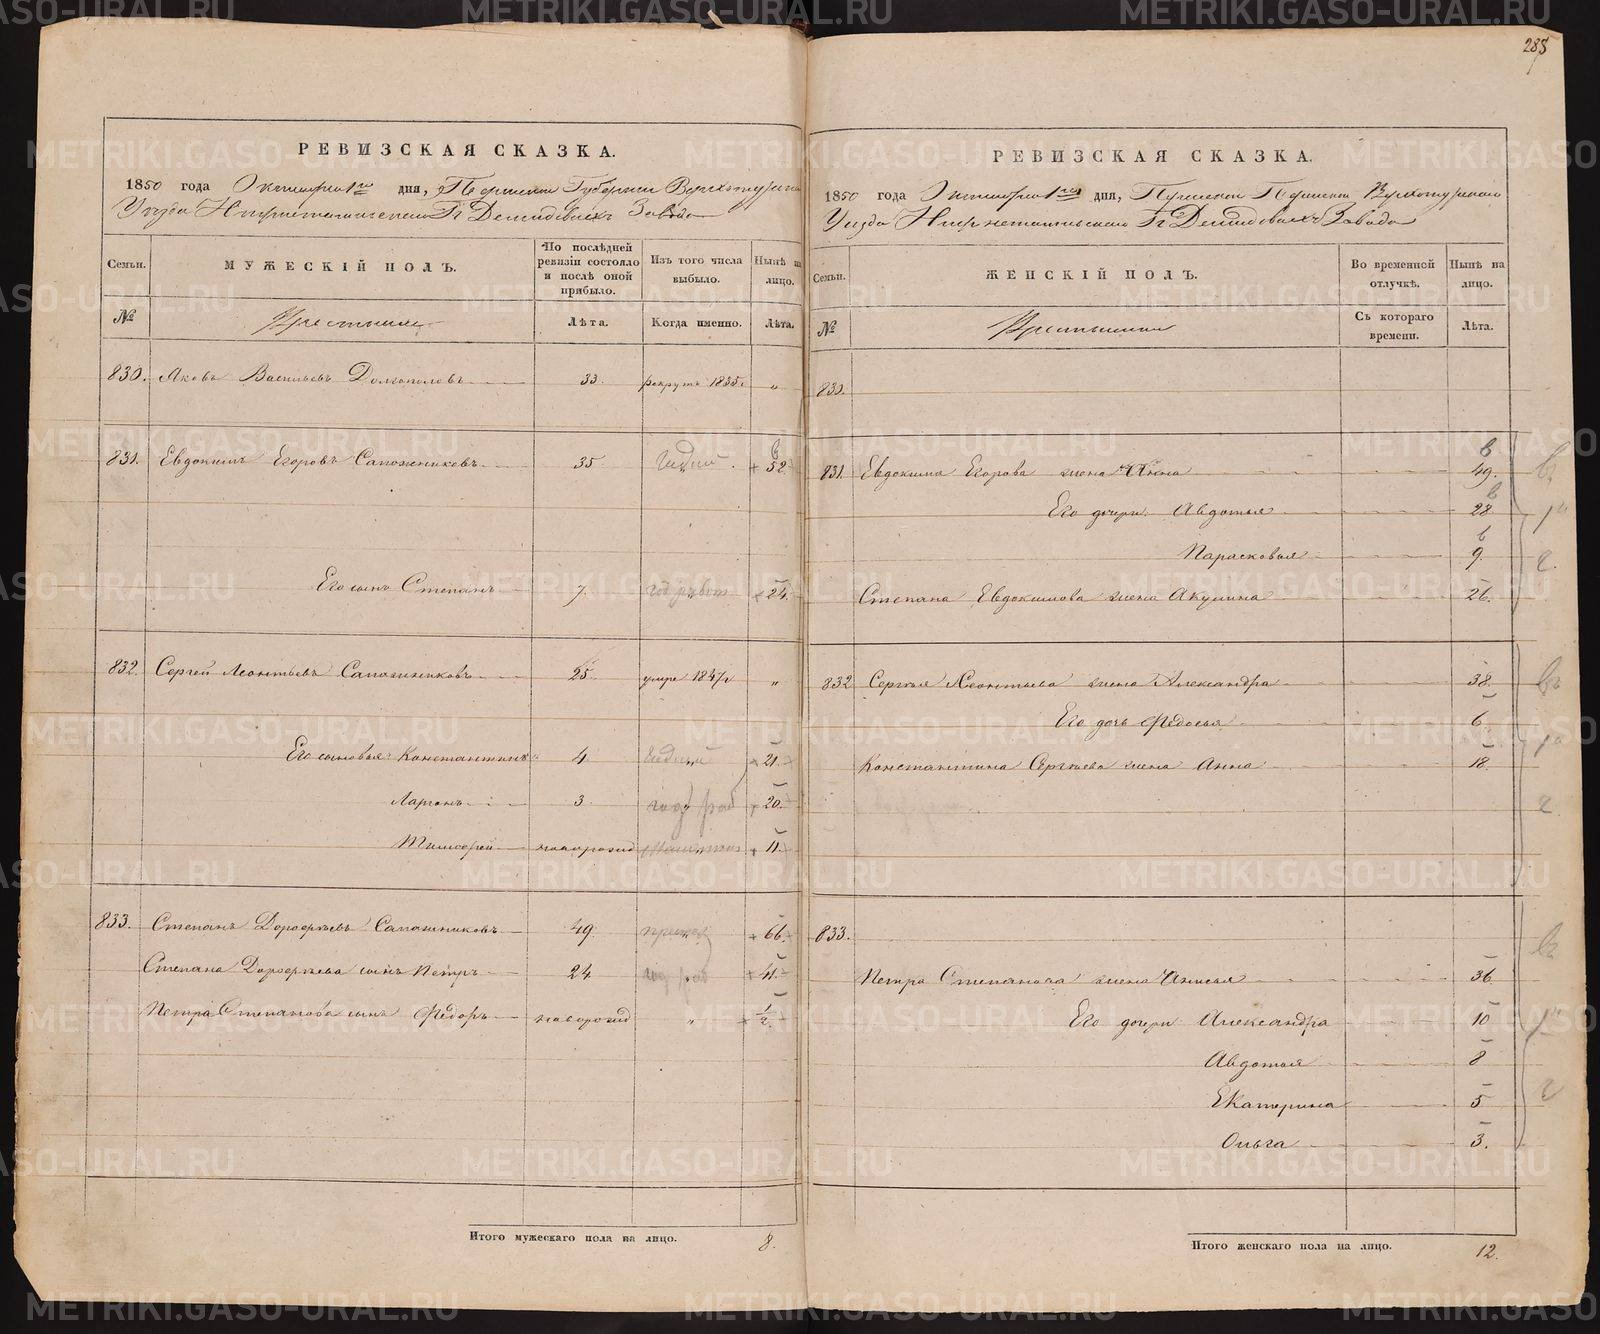 285
РЕВИЗСКАЯ СКАЗКА.
1850 года Октября 1го дня, Пермской Губернии Верхотурскаго
Уезда Нижнетагильскаго Гг Демидовыхъ Завода
Семьи.
МУЖЕСКІЙ ПОЛЪ.
По послѣдней ревизіи состояло и послѣ оной прибыло.
Изъ того числа выбыло.
Нынѣ на лицо.
№
Крестьяне
Лѣта.
Когда именно.
Лѣта.
830. Яковъ Васильевъ Долгополовъ 33. рекрутъ 1835г „
831. Евдокимъ Егоровъ Сапожниковъ 35 52
Его сынъ Степанъ 7. 24.
832. Сергей Леонтьевъ Сапожниковъ 25. умре 1847г „
Его сыновья Константинъ 4. 21.
Ларионъ 3. 20.
Тимофей новорожд 11.
833. Степанъ Дорофеевъ Сапожниковъ 49. 66.
Степана Дорофеева сынъ Петръ 24 41.
Петра Степанова сынъ Федоръ новорожд „ 1/2.
Итого мужескаго пола на лицо. 8.
РЕВИЗСКАЯ СКАЗКА.
1850 года Октября 1го дня, Пермской Верхотурскаго
Уезда Нижнетагильскаго Гг Демидовыхъ Завода
Семьи.
ЖЕНСКІЙ ПОЛЪ.
Во временной отлучкѣ.
Нынѣ на лицо.
№
Крестьянки
Съ котораго времени.
Лѣта.
830.
831. Евдокима Егорова жена Анна 49.
Его дочери Авдотья 28
Парасковья 9.
Степана Евдокимова жена Акулина 26.
832 Сергея Леонтьева жена Александра 38.
Его дочь Федосья 6.
Константина Сергеева жена Анна 18.
833.
Петра Степанова жена Анисья 36.
Его дочери Александра 10
Авдотья 8
Екатерина 5
Ольга 3.
Итого женскаго пола на лицо. 12.
METRIKI.GASO-URAL.RU